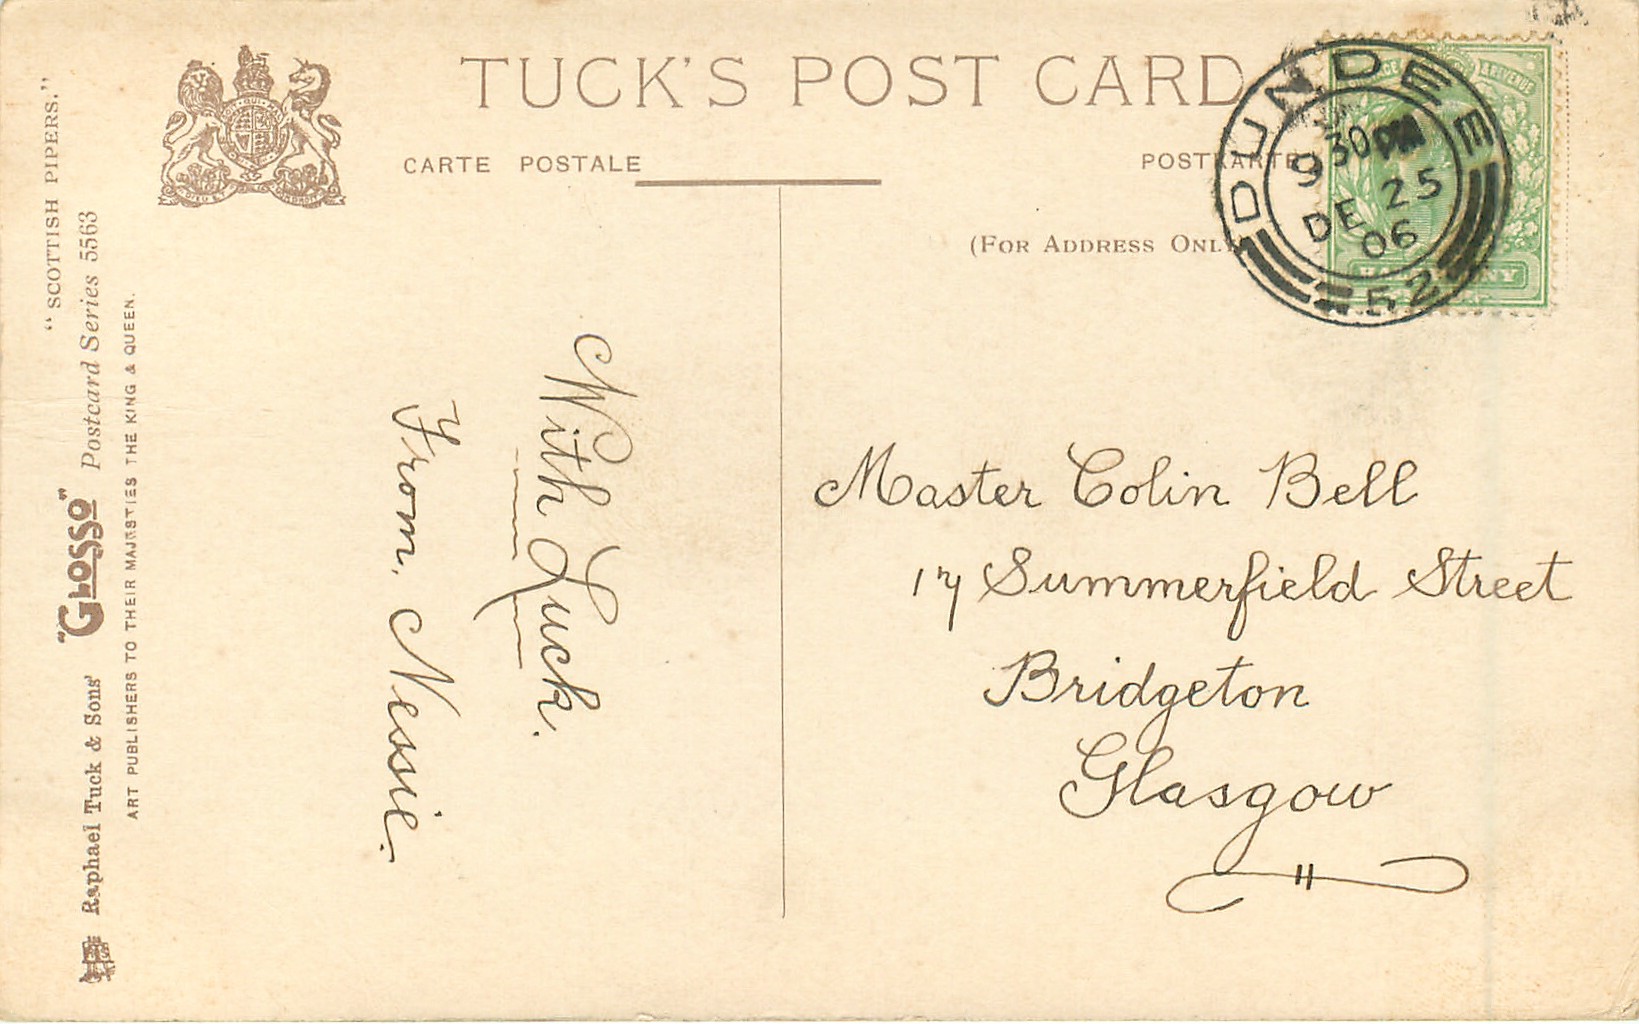 TUCK'S POST CARD
CARTE POSTALE
POSTKARTE
(FOR ADDRESS ONLY)
DUNDEE
9 30 PM
DE 25
06
52
"SCOTTISH PIPERS."
Raphael Tuck & Sons' "GLOSSO" Postcard Series 5563
ART PUBLISHERS TO THEIR MAJESTIES THE KING & QUEEN.
With Luck.
From, Nessie.
Master Colin Bell
17 Summerfield Street
Bridgeton
Glasgow